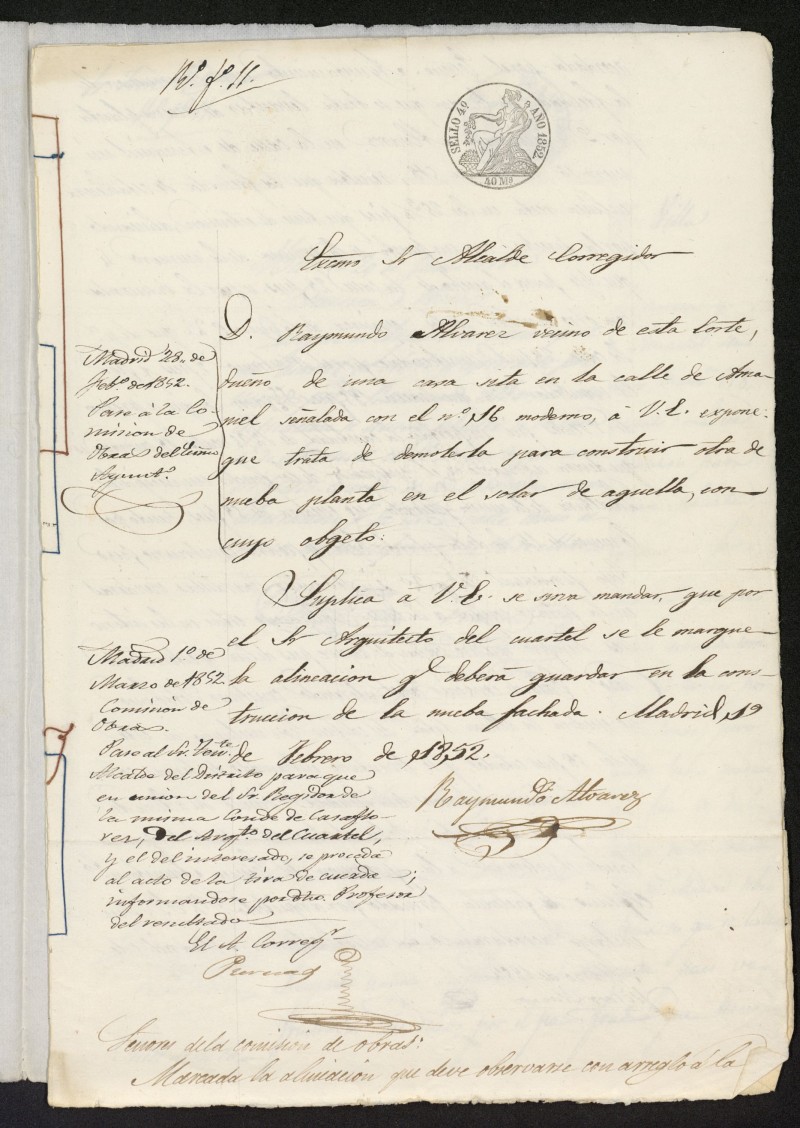 Rº fº 11.
SELLO 4º AÑO 1852
40 Ms
Excmo Sr Alcalde Corregidor
D. Raymundo Alvarez vecino de esta Corte,
dueño de una casa sita en la calle de Ama-
niel señalada con el nº 16 moderno, á V.E. expone:
que trata de demolerla para construir otra de
nueba planta en el solar de aquella, con
cuyo obgeto:
Suplica á V.E. se sirva mandar, que por
el Sr Arquitecto del cuartel se le marque
la alineacion q.e deberá guardar en la cons-
truccion de la nueba fachada. Madrid 19
de Febrero de 1852.
Raymundo Alvarez
Madrid 28 de
Feb.o de 1852.
Pase á la Co-
mision de
Obras del Excmo
Ayunt.o
Madrid 1º de
Marzo de 1852
Comision de
Obras
Pase al Sr. Ten.te
Alcalde del Distrito para que
en union del Sr Regidor de
la misma Conde de Casaflo-
res, del Arq.to del Cuartel,
y el del interesado, se proceda
al acto de la tira de cuerda;
informandose por dho. Profesor
del resultado
El A. Correg.r
Señores de la comision de obras:
Marcada la alineacion que deve observarse con arreglo á la